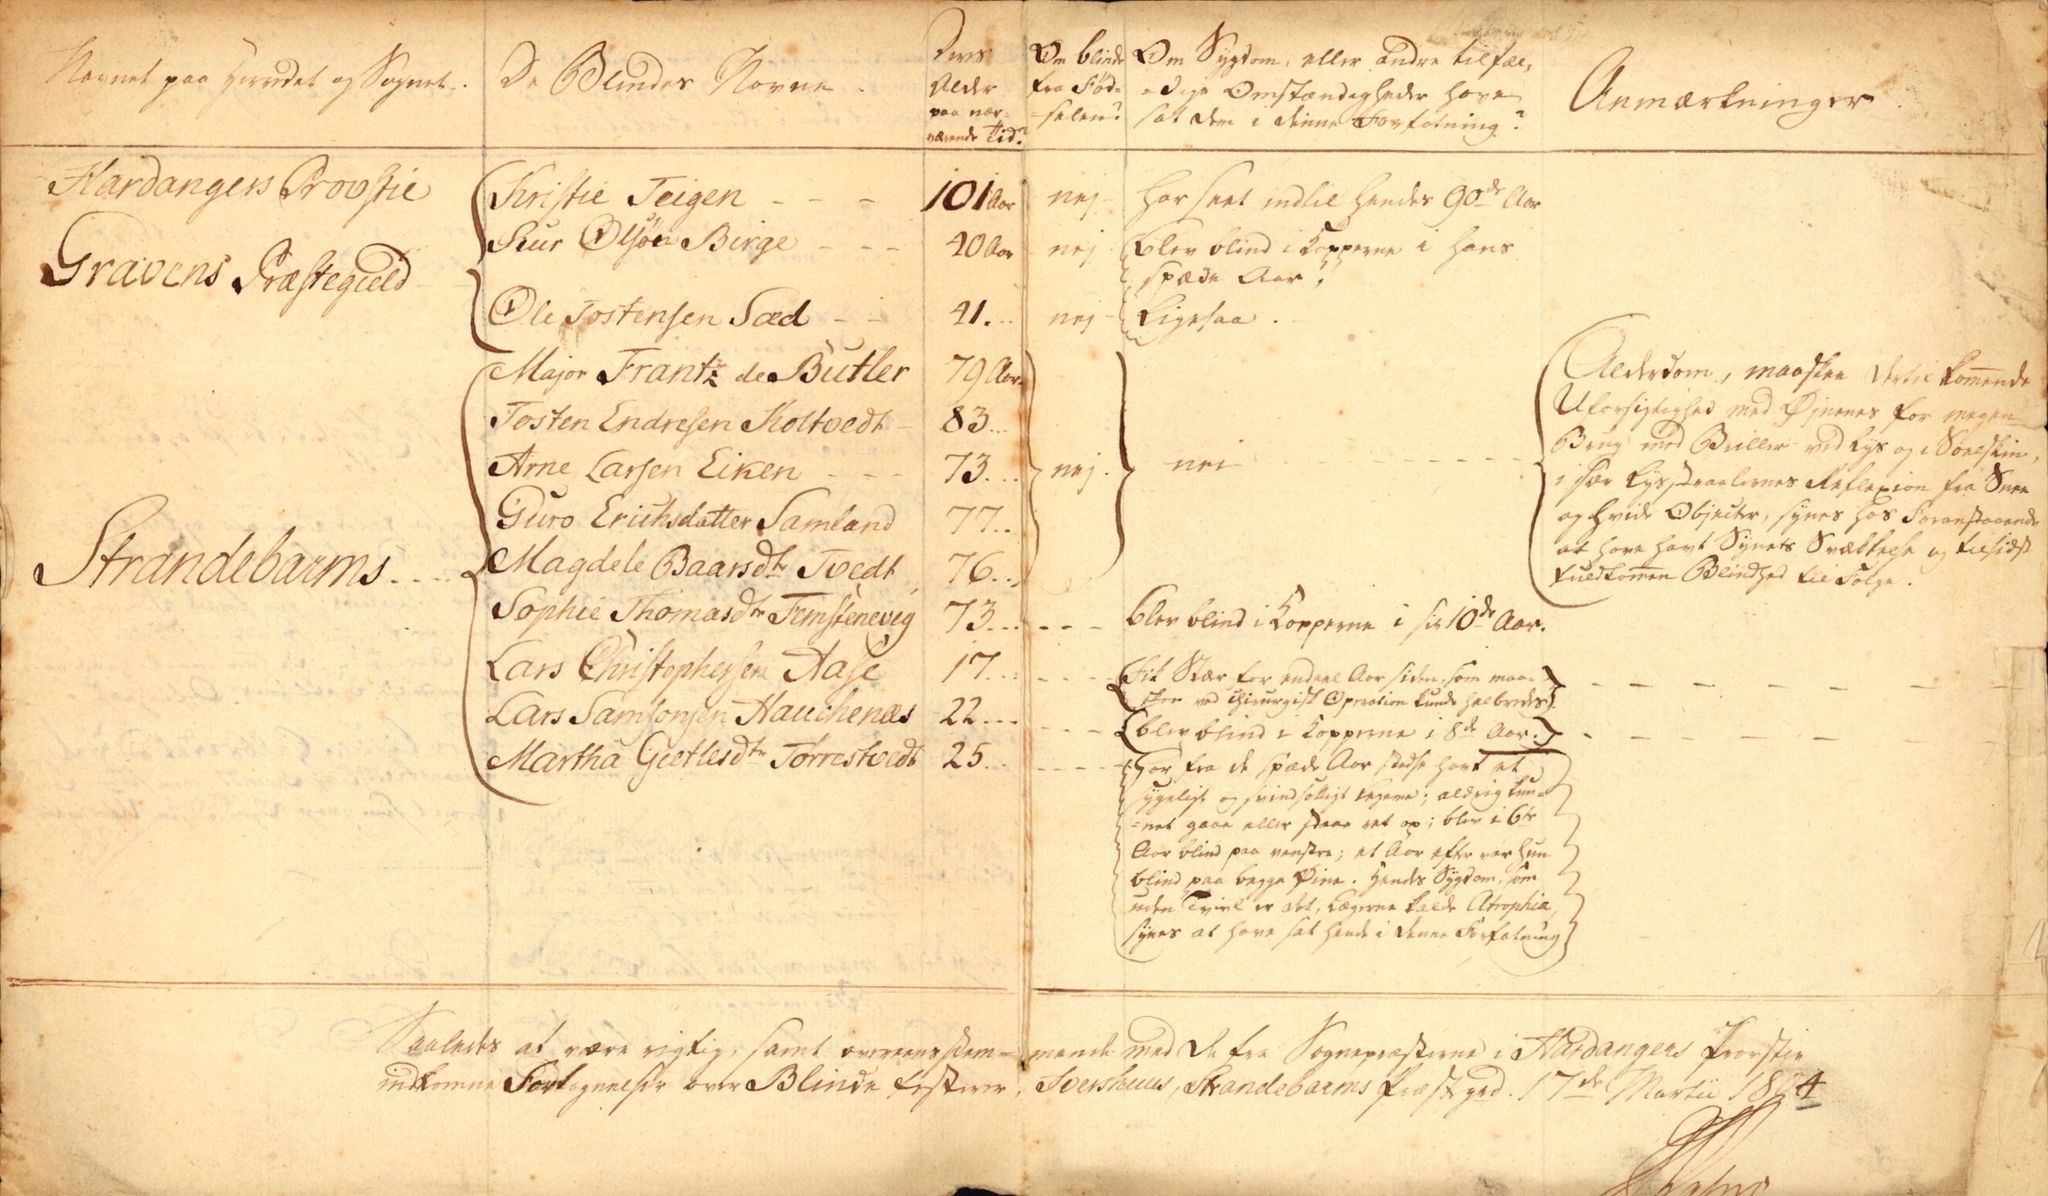 Navnet paa Herredet og Sognet.
De Blindes Navne.
Deres
Alder
paa nær-
værende Tid?
Om blinde
fra Fød-
-selen?
Om Sygdom, eller andre tilfæl-
-dige Omstændigheder have
sat dem i denne Forfatning?
Anmærkninger
Hardangers Provstie
Gravens Præstegield
Kristie Teigen - - - 101 Aar nej - har seet indtil hendes 90de Aar
Siur Olsøn Birge - - - 40 Aar nej blev blind i Kopperne i hans
spæde Aar.
Ole Tostensen Sæd - - 41. .. nej - Ligesaa.
Strandebarms. . . .
Major Frantz de Butler 79 Aar.
Tosten Endresen Koltvedt - 83. ..
Arne Larsen Eiken - - - 73. ... nej. nei
Guro Erichsdatter Samland 77. ..
Magdele Baarsdtr Tvedt 76. ..
Alderdom, maaskee dertil kommende
Uforsigtighed med Øjnenes for megen
Brug med Briller ved Lys og i Soelskin,
i sær Lysstraalernes Reflexion fra Snee
og hvide Objecter, synes hos Foranstaaende
at have havt Synets Svækkelse og tilsidst
fuldkommen Blindhed til Følge.
Sophie Thomasdtr Femstenevig 73. .. - - - blev blind i Kopperne i sit 10de Aar.
Lars Christophersen Aase 17. .. - - - - Fik Stær for endeel Aar siden, som maa-
skee ved chirurgisk Operation kunde helbredes.
Lars Samsonsen Hauchenæs 22. .. - - - blev blind i Kopperne i 8de Aar.
Martha Gietlesdtr Torrestvedt 25. .. - - - -
Har fra de spæde Aar stedse havt et
sygeligt og svindsottigt Legeme; aldrig kun-
-net gaae eller staae ret op; blev i 6te
Aar blind paa venstre; et Aar efter var hun
blind paa begge Øine. Hendes Sygdom, som
uden Tvivl er det, Lægerne kalde Atrophia,
synes at have sat hende i denne Forfatning
Saaledes at være rigtig, samt overeensstem- mende med de fra Sognepræsterne i Hardangers Provstie
indkomne Fortegnelser over Blinde testerer, Svershuus, Strandebarms Præstegrd. 17de Martii 1804